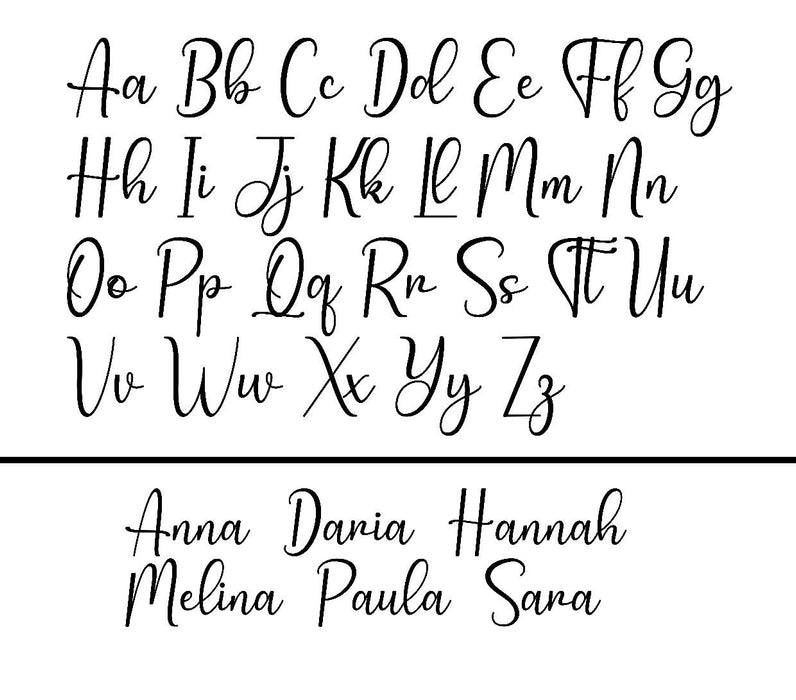 Aa Bb Cc Dd Ee Ff Gg
Hh Ii Jj Kk Ll Mm Nn
Oo Pp Qq Rr Ss Tt Uu
Vv Ww Xx Yy Zz
Anna Daria Hannah
Melina Paula Sara